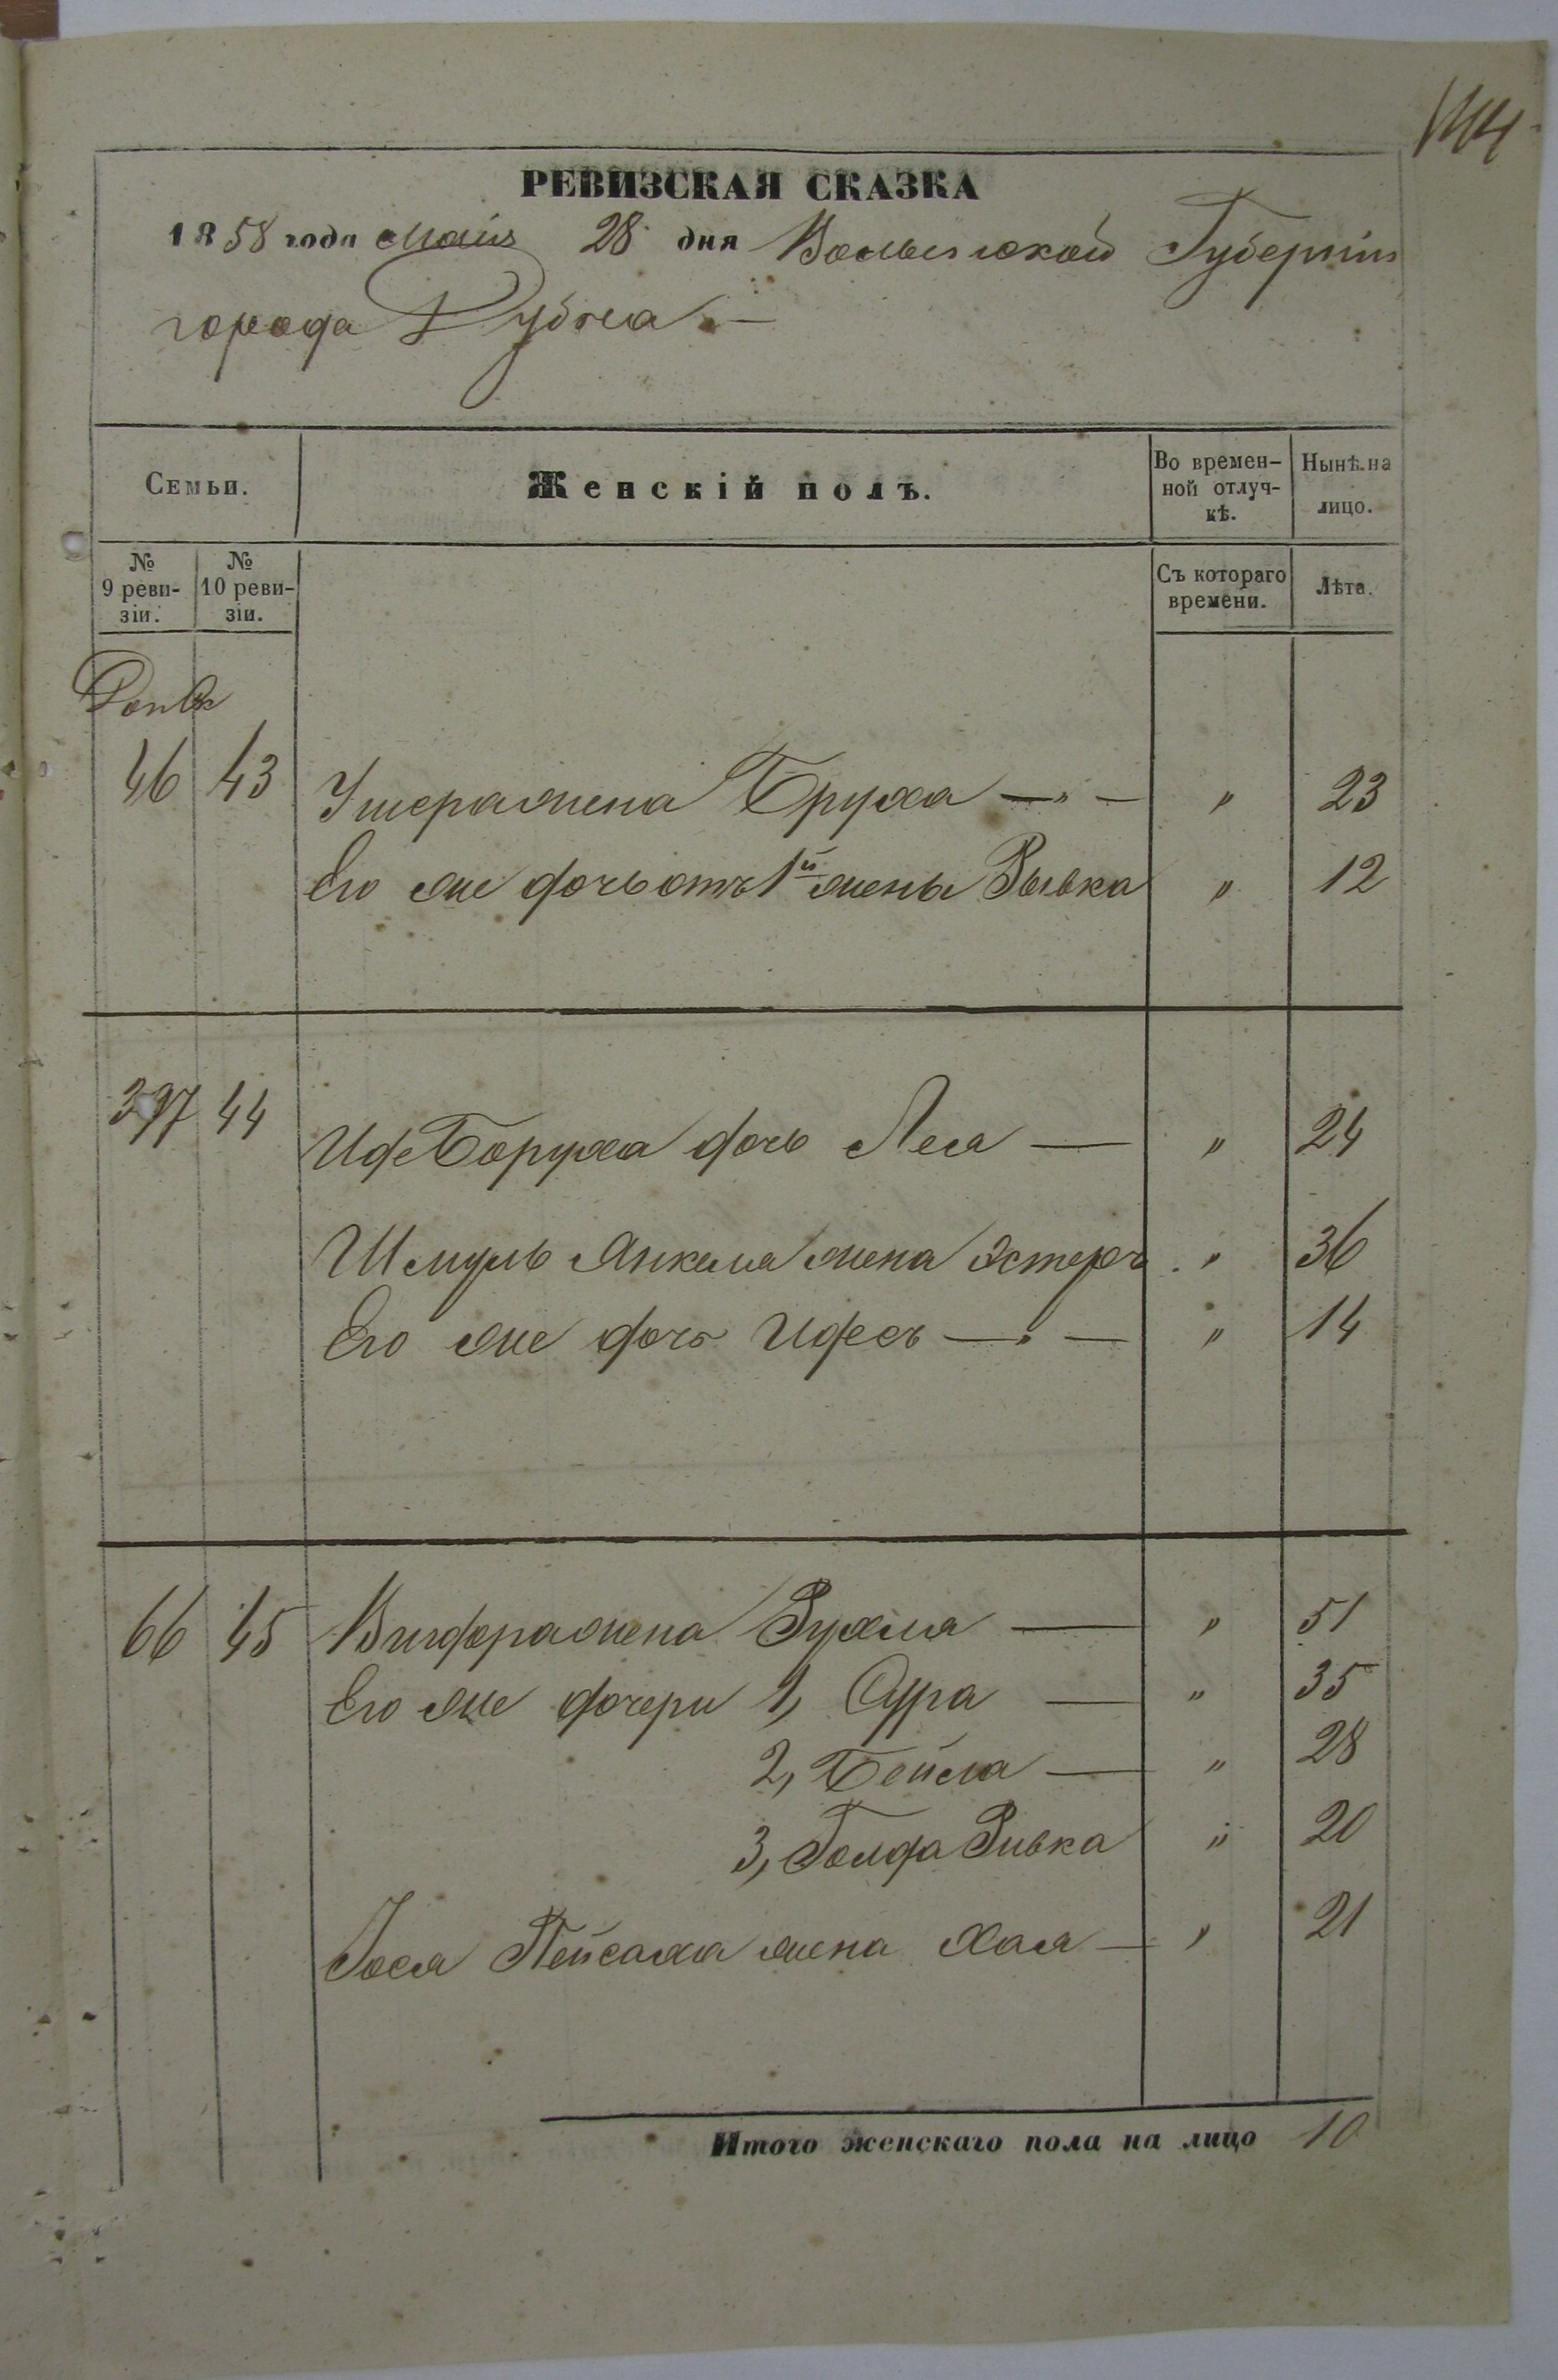 РЕВИЗСКАЯ СКАЗКА
1858 года Маія 28 дня Волынской Губерніи
города Дубна
Семьи. Женскій полъ. Во времен-ной отлуч-кѣ. Нынѣ на лицо.
№ 9 реви-зіи. № 10 реви-зіи. Съ котораго времени. Лѣта.
46 43 Ушера жена Бруха — „ 23
Его же дочь отъ 1й жены Рывка „ 12
397 44 Иде Боруха дочь Лея — „ 24
Шмуль Янкеля жена Эстеръ „ 36
Его же дочь Идесъ — „ 14
66 45 жена Рухля — „ 51
Его же дочери 1, Сура — „ 35
2, Бейла — „ 28
3, Голда Ривка „ 20
Іося Пейсаха жена Хая — „ 21
Итого женскаго пола на лицо 10